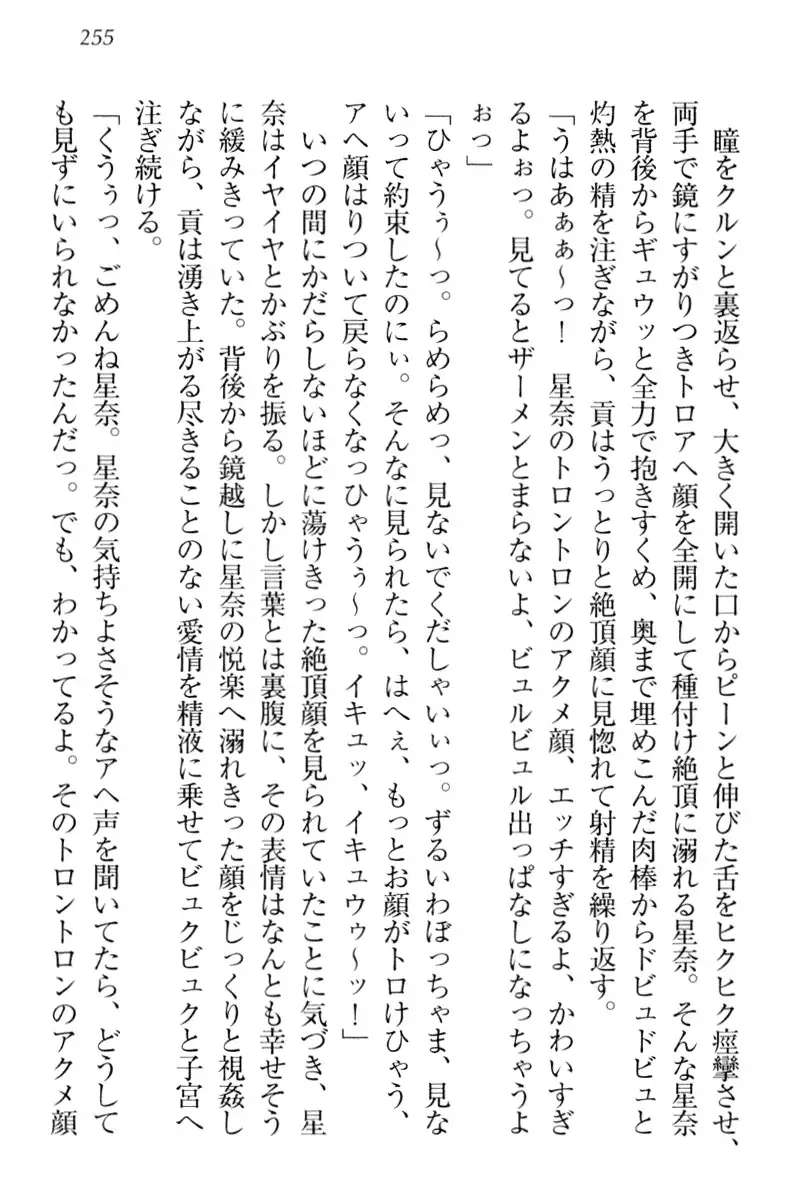 255
瞳をクルンと裏返らせ、大きく開いた口からピーンと伸びた舌をヒクヒク痙攣させ、
両手で鏡にすがりつきトロアヘ顔を全開にして種付け絶頂に溺れる星奈。そんな星奈
を背後からギュウッと全力で抱きすくめ、奥まで埋めこんだ肉棒からドビュドビュと
灼熱の精を注ぎながら、貢はうっとりと絶頂顔に見惚れて射精を繰り返す。
「うはあぁぁ～っ！　星奈のトロントロンのアクメ顔、エッチすぎるよ、かわいすぎ
るよぉっ。見てるとザーメンとまらないよ、ビュルビュル出っぱなしになっちゃうよ
ぉっ」
「ひゃうぅ～っ。らめらめっ、見ないでくだしゃいぃっ。ずるいわぼっちゃま、見な
いって約束したのにぃ。そんなに見られたら、はへぇ、もっとお顔がトロけひゃう、
アヘ顔はりついて戻らなくなっひゃうぅ～っ。イキュッ、イキュウゥ～ッ！」
いつの間にかだらしないほどに蕩けきった絶頂顔を見られていたことに気づき、星
奈はイヤイヤとかぶりを振る。しかし言葉とは裏腹に、その表情はなんとも幸せそう
に緩みきっていた。背後から鏡越しに星奈の悦楽へ溺れきった顔をじっくりと視姦し
ながら、貢は湧き上がる尽きることのない愛情を精液に乗せてビュクビュクと子宮へ
注ぎ続ける。
「くうぅっ、ごめんね星奈。星奈の気持ちよさそうなアヘ声を聞いてたら、どうして
も見ずにいられなかったんだっ。でも、わかってるよ。そのトロントロンのアクメ顔